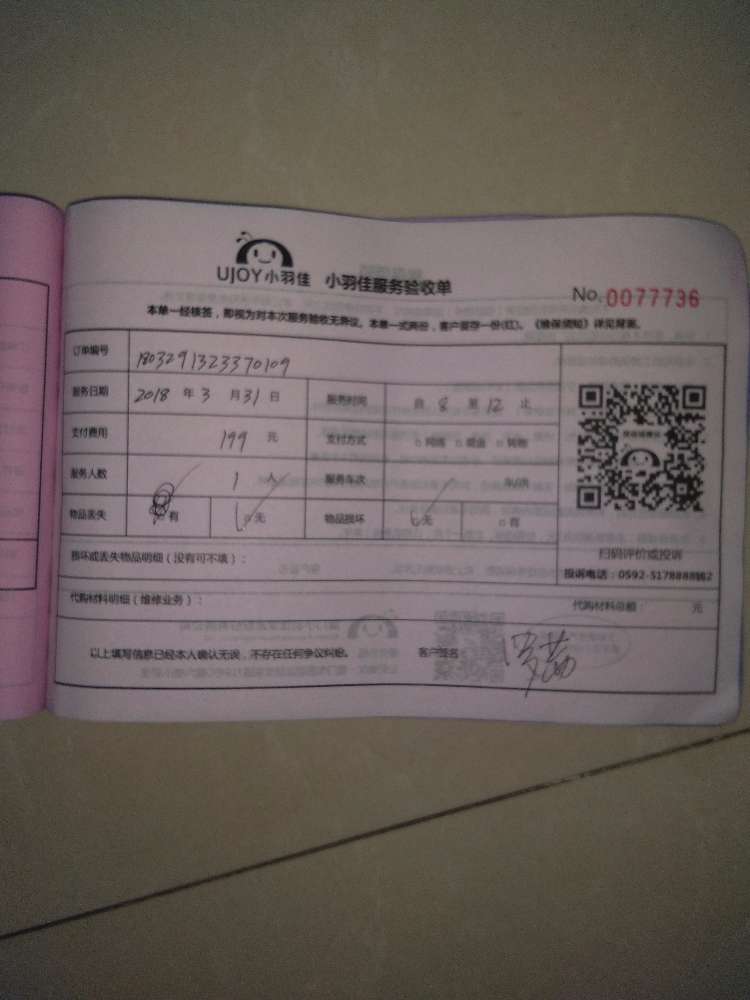 UJOY小羽佳 小羽佳服务验收单
No. 0077736
本单一经核签，即视为对本次服务验收无异议。本单一式两份，客户留存一份(红)。《维保须知》详见背面。
订单编号 1803291323370109
服务日期 2018 年 3 月 31 日 服务时间 自 8 至 12 止
支付费用 199 元 支付方式 □网络 □现金 □转账
服务人数 1 人 服务车次 车/次
物品丢失 □有 □无 物品损坏 □无 □有
扫码评价或投诉
损坏或丢失物品明细（没有可不填）：
投诉电话：0592-5178888转2
代购材料明细（维修业务）： 代购材料总额： 元
以上填写信息已经本人确认无误，不存在任何争议纠纷。 客户签名